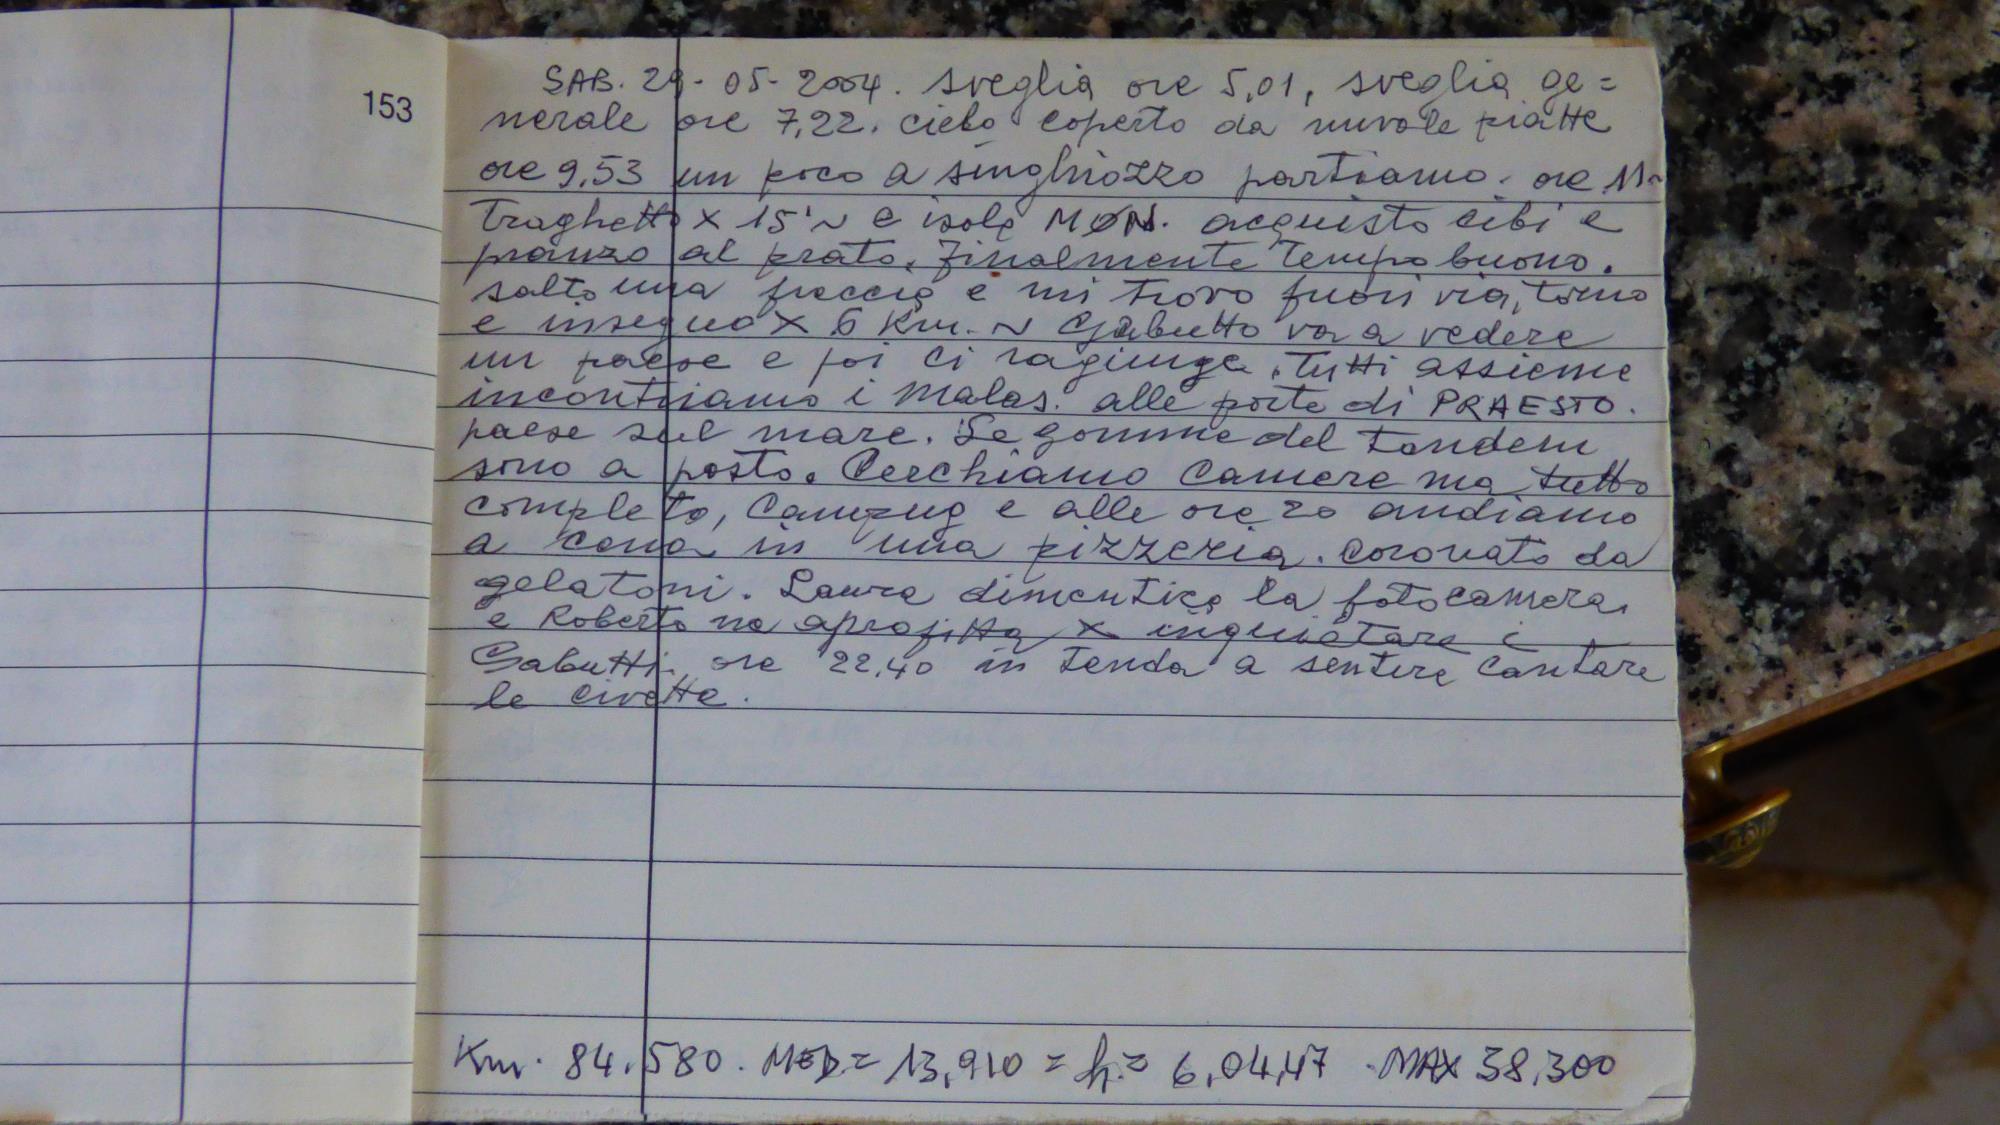 153
SAB. 29-05-2004. sveglia ore 5,01, sveglia ge=
nerale ore 7,22. cielo coperto da nuvole piatte
ore 9,53 un poco a singhiozzo partiamo. ore 11~
Traghetto x 15'~ e isola MØN. acquisto cibi e
pranzo al prato. Finalmente Tempo buono.
salto una freccia e mi trovo fuori via, torno
e inseguo x 6 Km. ~ Gabutto va a vedere
un paese e poi ci ragiunge. Tutti assieme
incontriamo i Malas. alle porte di PRAESTO.
paese sul mare. Le gomme del Tandem
sono a posto. Cerchiamo camere ma tutto
completo, Camping e alle ore 20 andiamo
a cena in una pizzeria. coronato da
gelatoni. Laura dimentica la fotocamera
e Roberto ne aprofitta x inquietare i
Gabutti. ore 22,40 in Tenda a sentire cantare
le civette.
Km. 84,580. MED= 13,910 = h= 6,04,47 . MAX 38,300